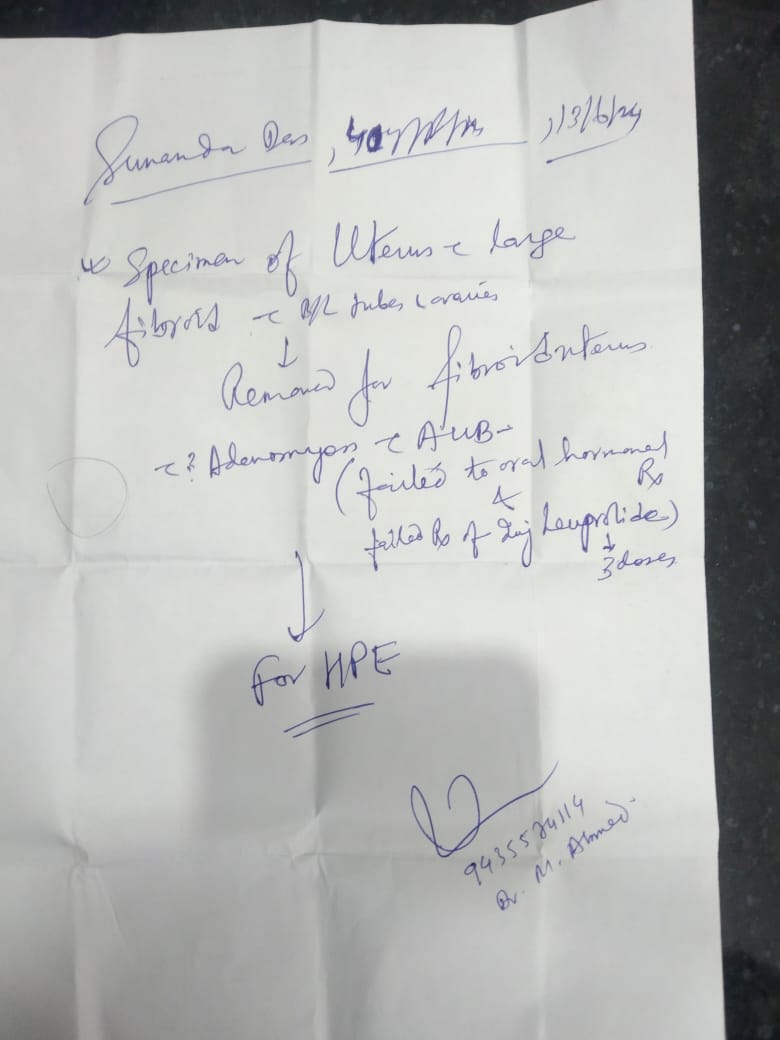 Sunanda Das, 40 yrs/F/m, 13/6/24
* Specimen of Uterus c large
fibroid c B/L tubes & ovaries
↓
Removed for fibroid uterus
c ? Adenomyosis c AUB-
(failed to oral hormonal
Rx
&
failed Rx of Inj Leuprolide)
↓
3 doses
↓
For HPE
9435574114
Dr. M. Ahmed